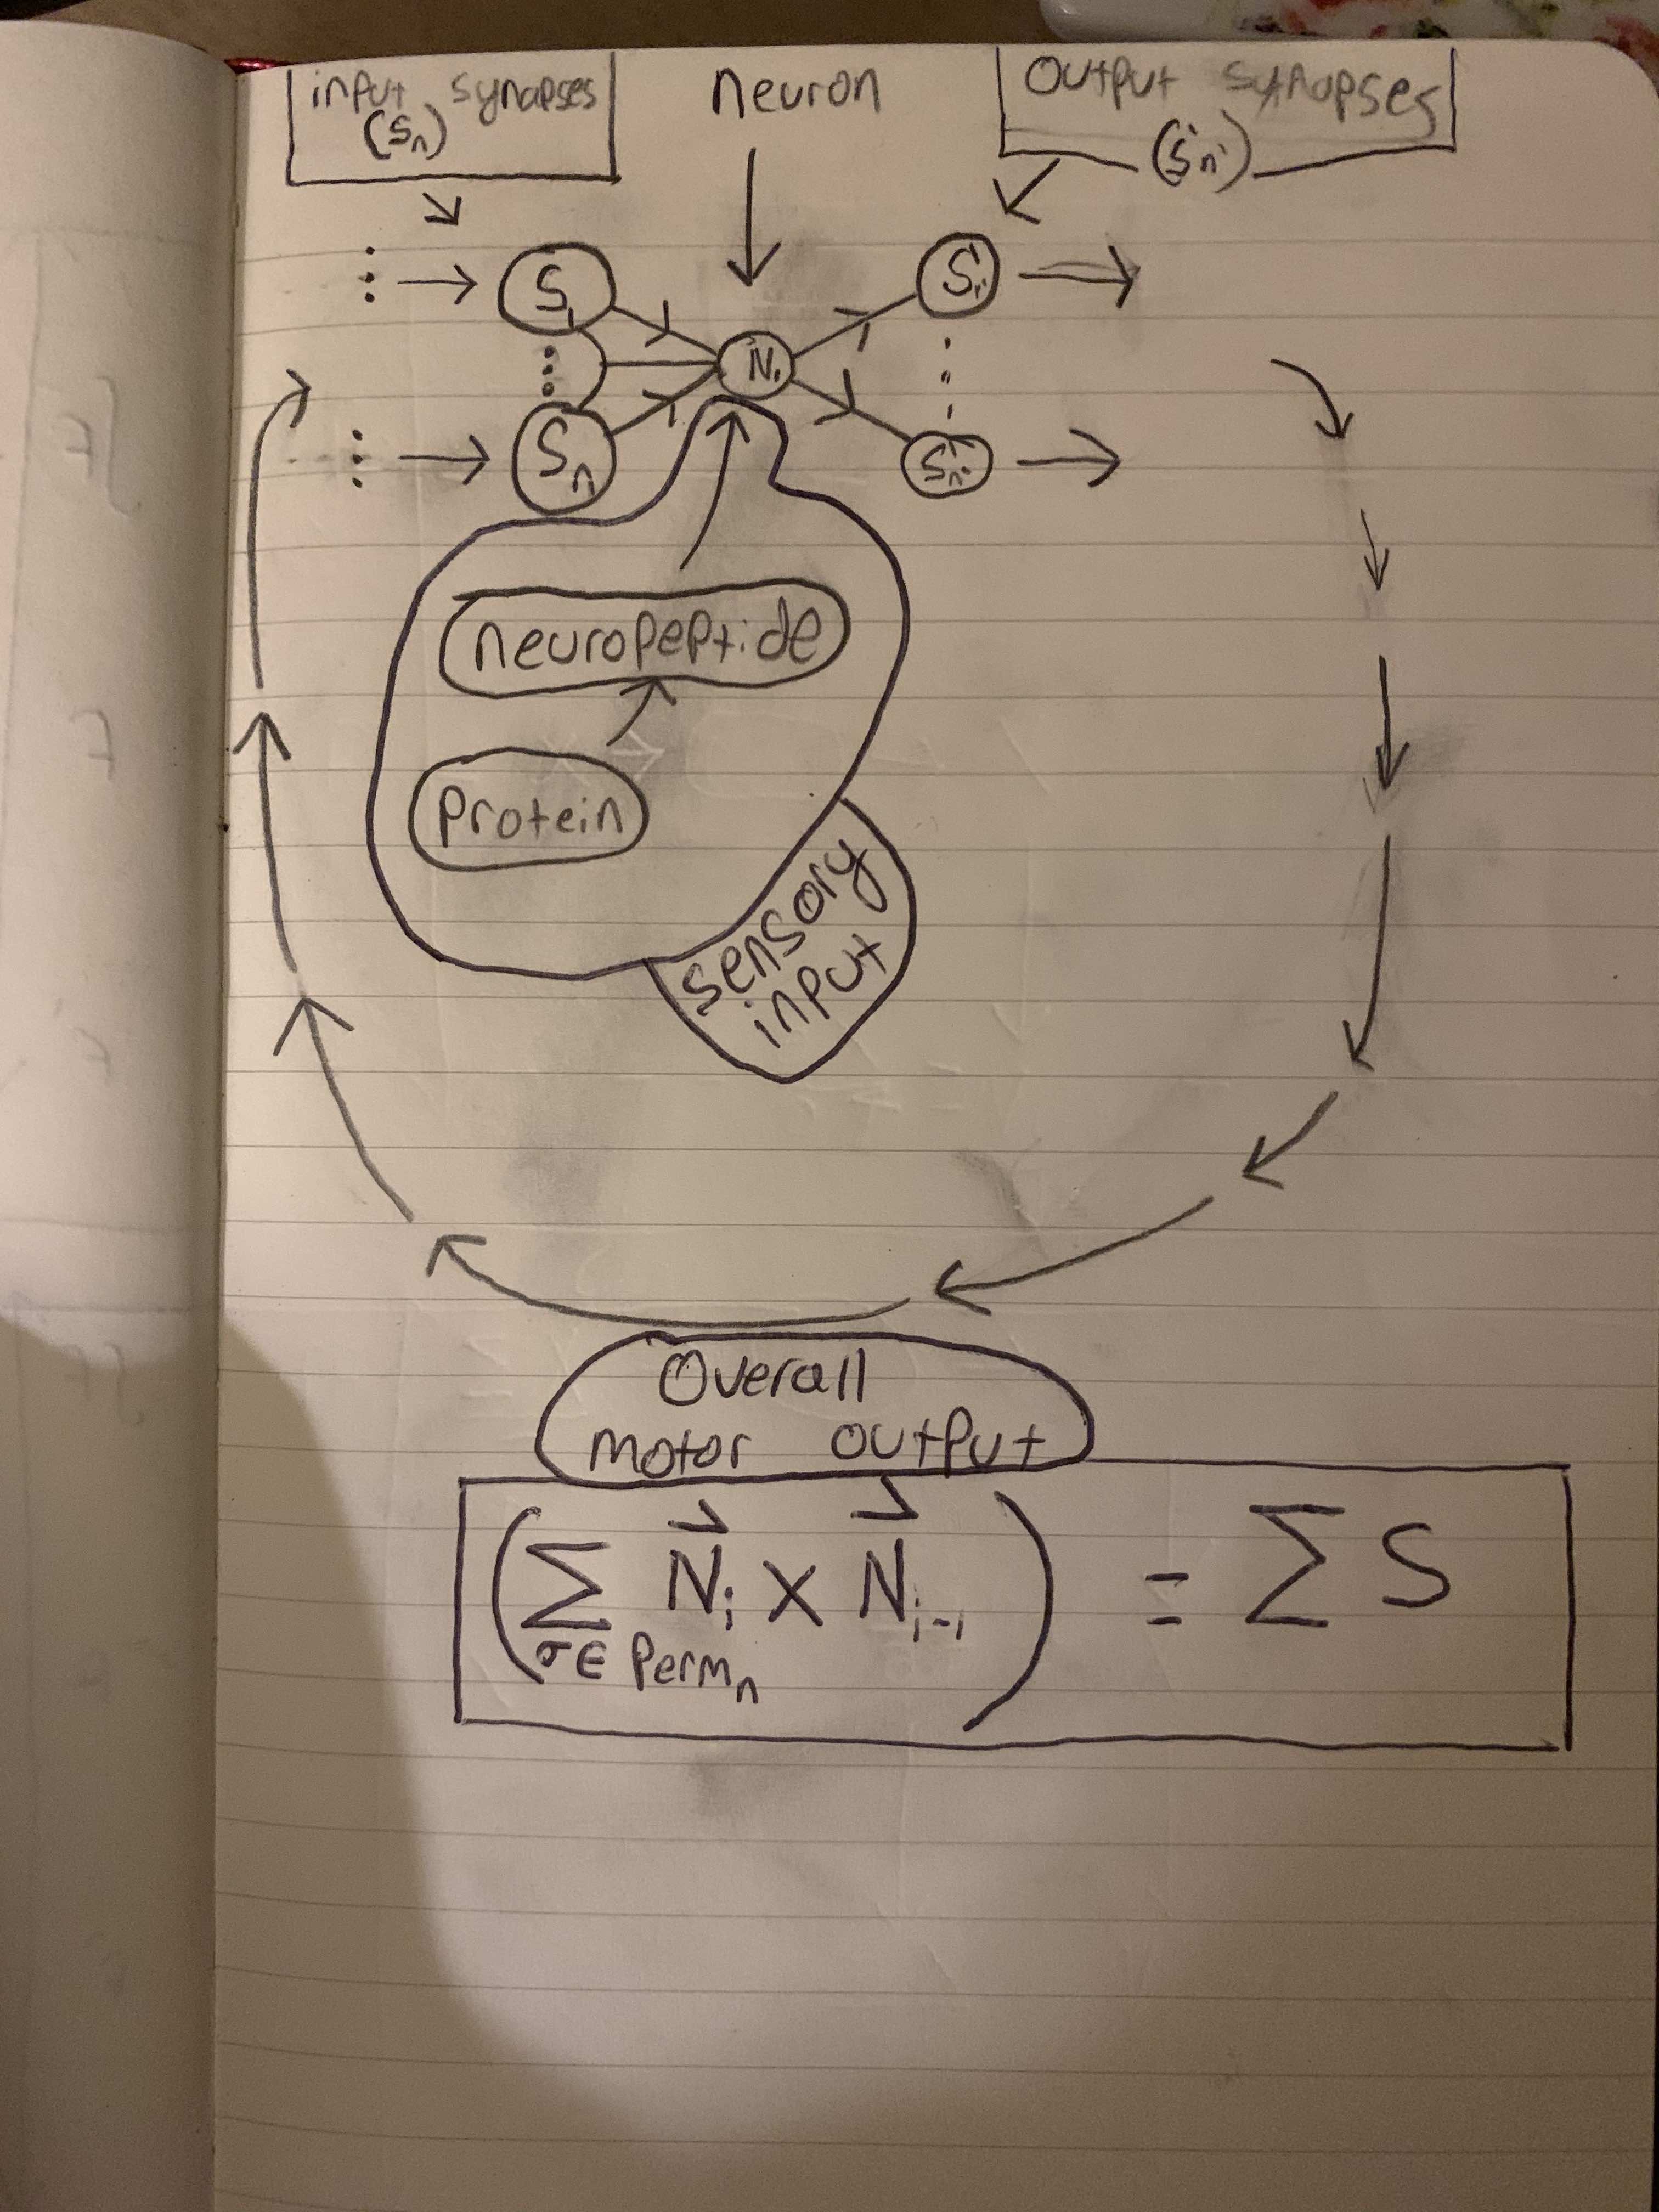 input synapses
(Sn)
neuron
output synapses
(S'n')
S1
S1'
N1
Sn
Sn'
neuropeptide
Protein
sensory
input
Overall
motor output
(∑ N⃗i × N⃗i-1) = ∑ S
σ ∈ Permn